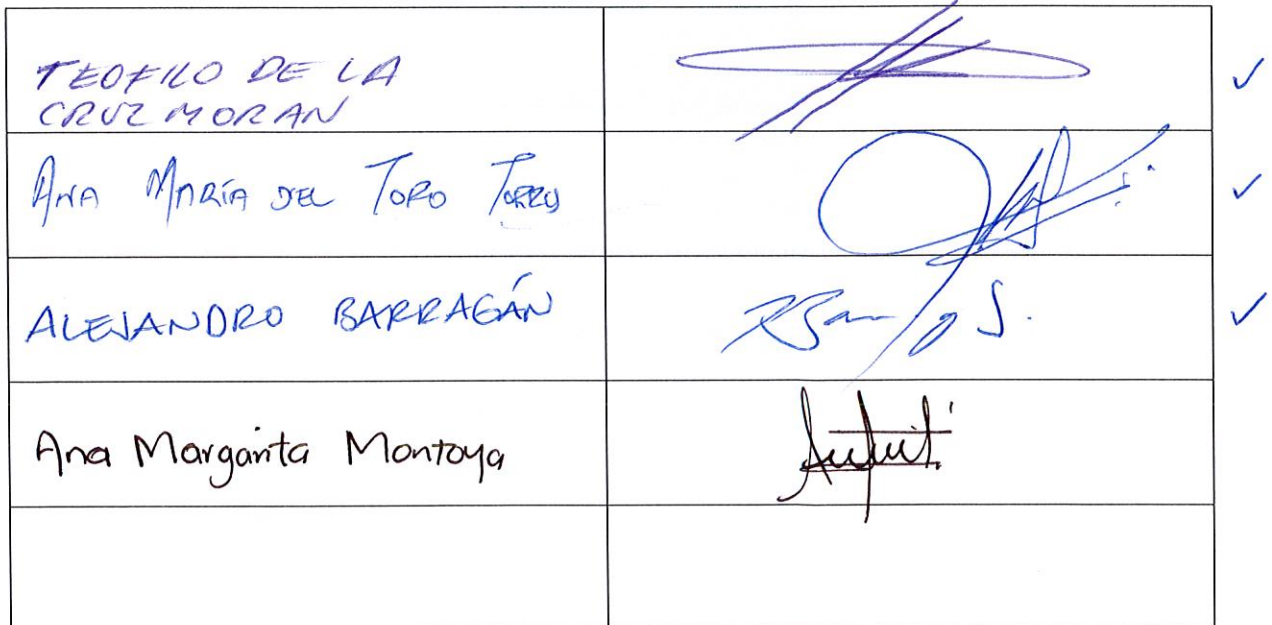 TEOFILO DE LA
CRUZ MORAN
ANA MARÍA DEL TORO TORRES
ALEJANDRO BARRAGÁN
Ana Margarita Montoya